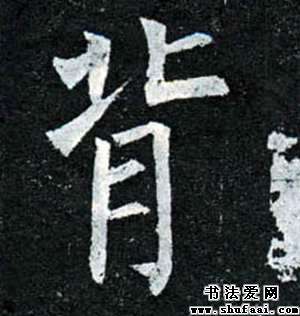 背
书法爱网
www.shufaai.com